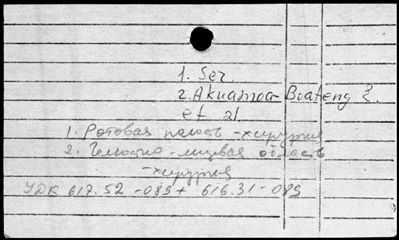 1. Ser
2. Akuamoa-Boateng E.
et al.
1. Ротовая полость - хирургия
2. Челюстно-лицевая область
- хирургия
УДК 617.52-089 + 616.31-089